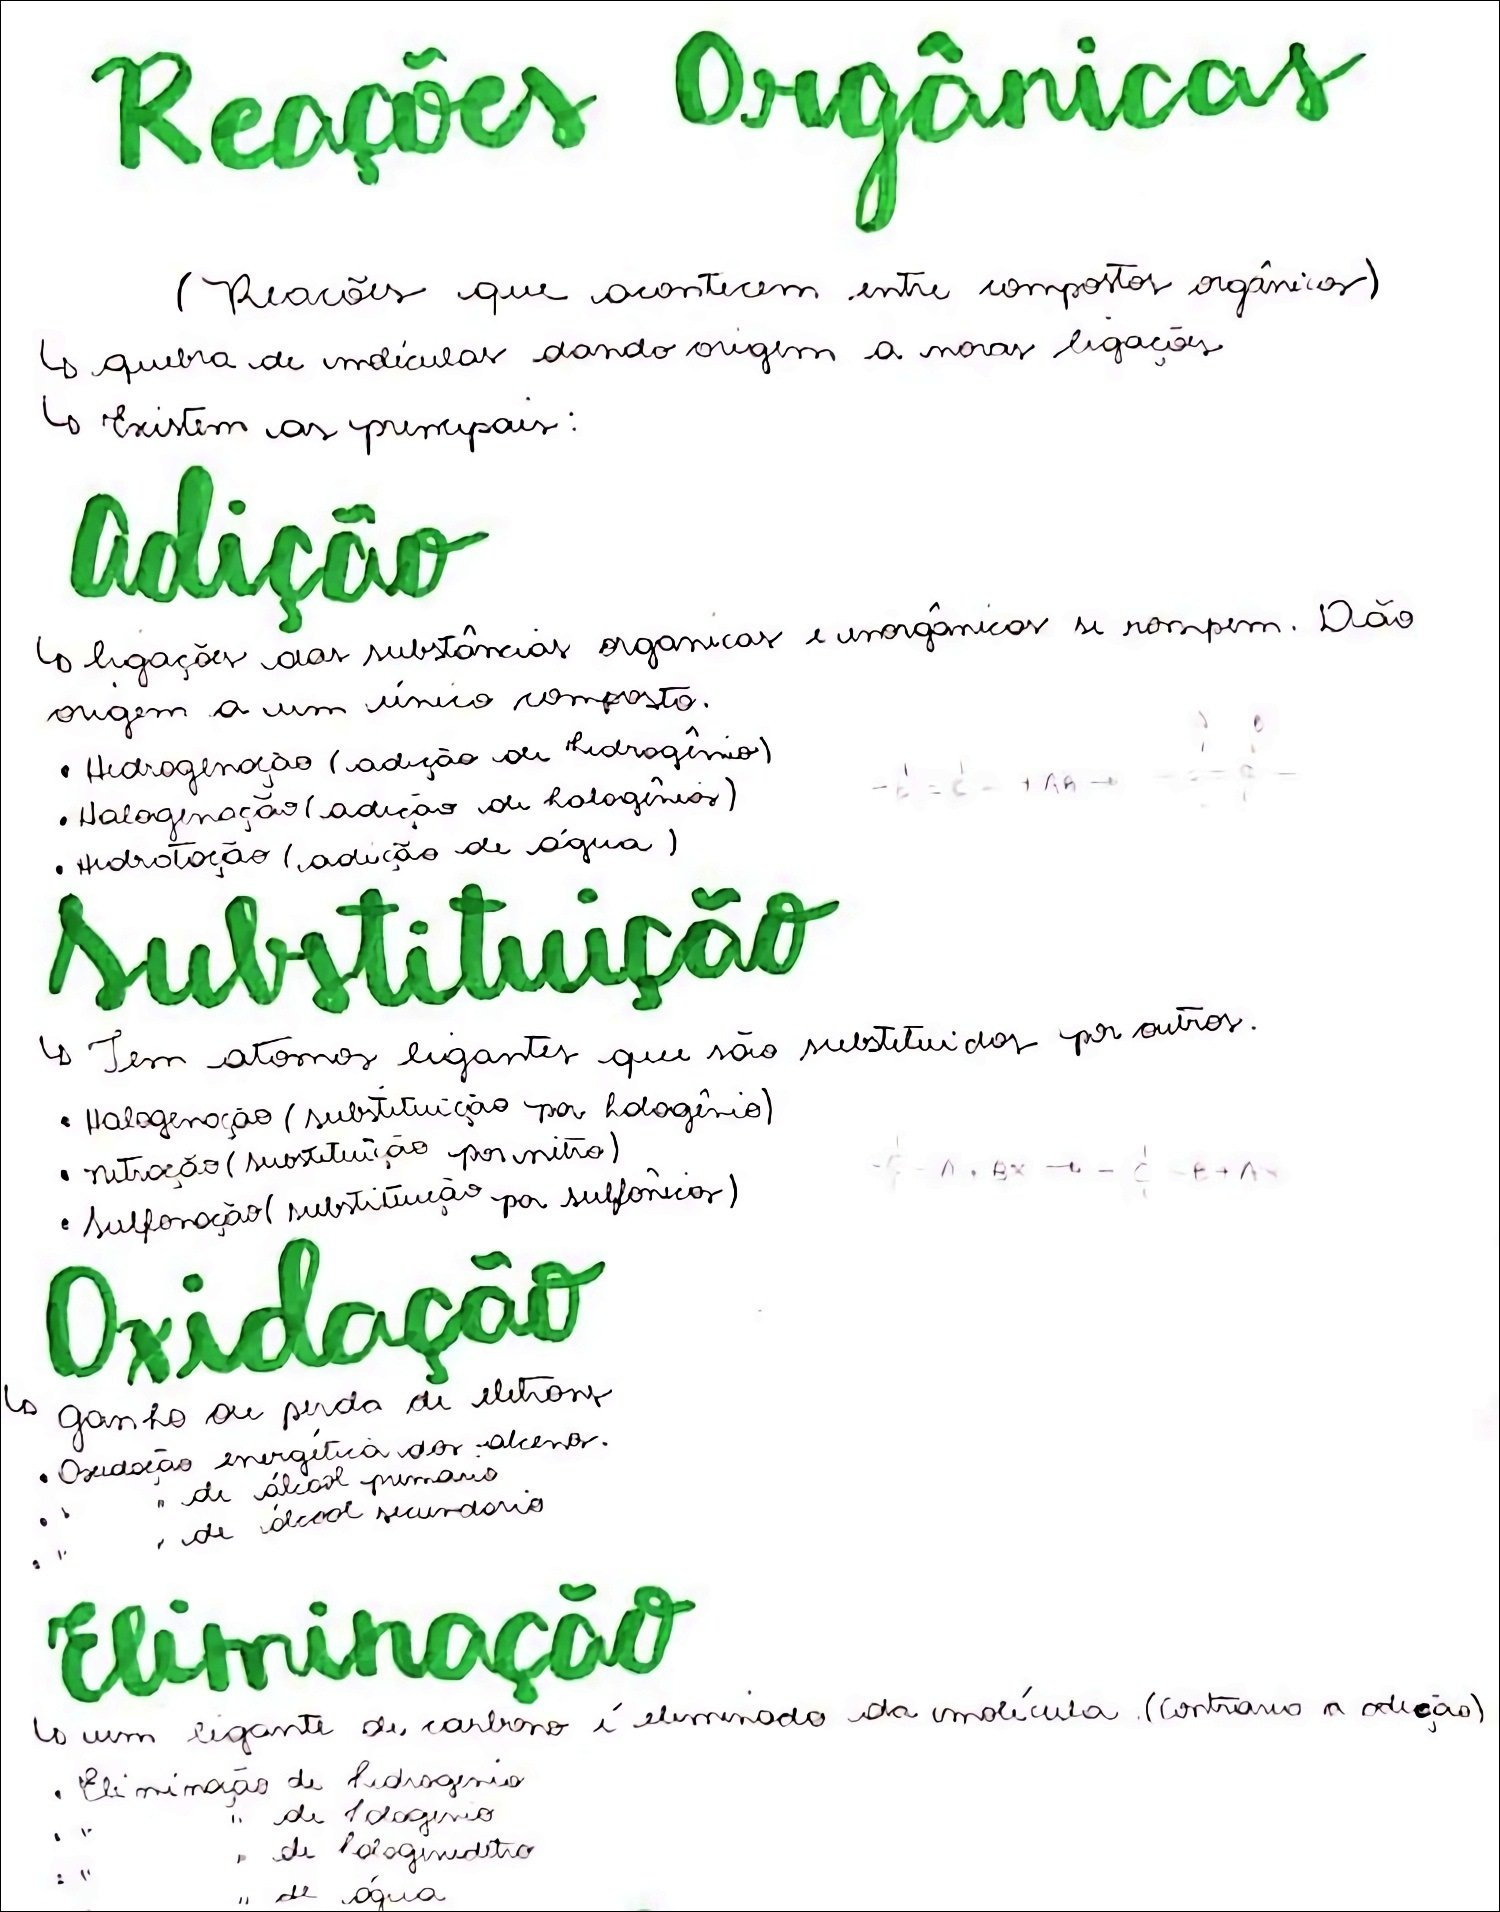 Reações Orgânicas
(Reacões que acontecem entre compostos orgânicos)
↳ quebra de moléculas dando origem a novas ligações
↳ Existem as principais:
Adição
↳ ligações das substâncias organicas e inorgânicas se rompem. Dão
origem a um único composto.
• Hidrogenação (adição de hidrogênio)
• Halogenação (adição de halogênios)
• Hidrotação (adição de água)
Substituição
↳ Tem atomos ligantes que são substituidos por outros.
• Halogenação (substituição por halogênio)
• nitração (substituição por nitro)
• Sulfonação (substituição por sulfônicos)
Oxidação
↳ ganho ou perda de eletrons
• Oxidação energética dos alcenos.
• " " de álcool primario
• " " de álcool secundario
Eliminação
↳ um ligante de carbono é eliminado da molécula. (Contrario a adição)
• Eliminação de hidrogenio
• " " de halogenio
• " " de
" de água